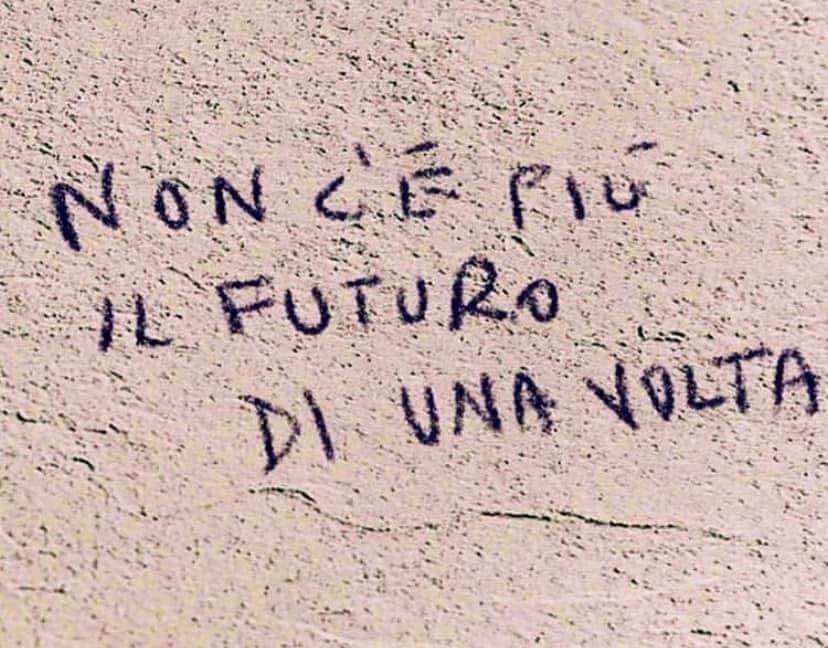 NON C'É PIÚ
IL FUTURO
DI UNA VOLTA